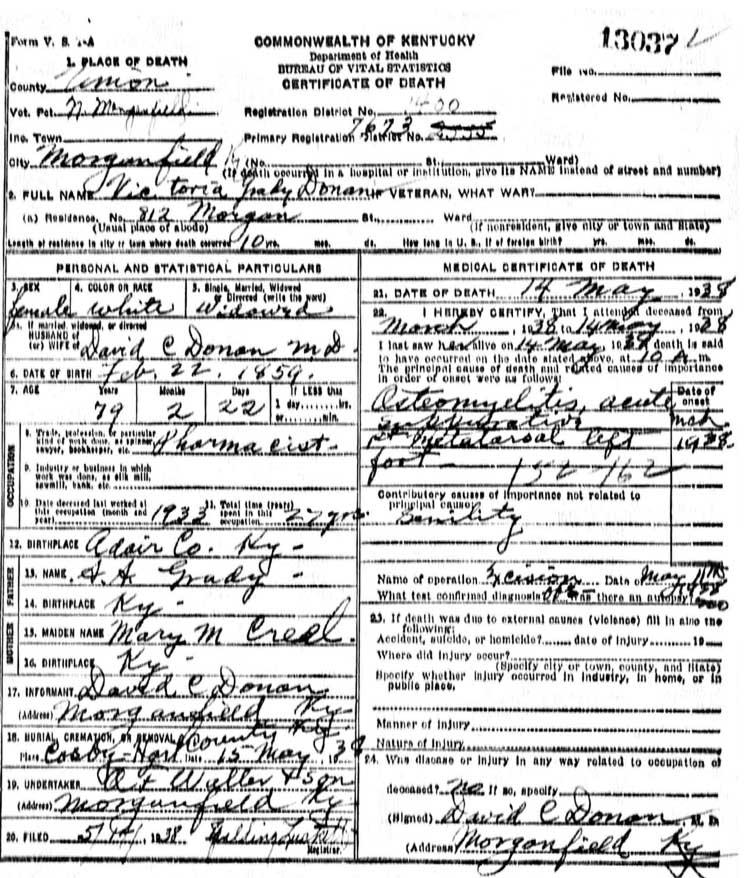 Form V. S. 1-A
COMMONWEALTH OF KENTUCKY
Department of Health
BUREAU OF VITAL STATISTICS
CERTIFICATE OF DEATH
13037
File No.
Registered No.
1. PLACE OF DEATH
County Union
Vot. Pct. N. Morganfield
Registration District No. 1400
Inc. Town
Primary Registration District No. 7673
City Morganfield Ky (No. St. Ward)
(If death occurred in a hospital or institution, give its NAME instead of street and number)
2. FULL NAME Victoria Donan IF VETERAN, WHAT WAR?
(a) Residence. No. 812 Morgan St., Ward
(Usual place of abode) (If nonresident, give city or town and State)
Length of residence in city or town where death occurred 10 yrs. mos. ds. How long in U. S., if of foreign birth? yrs. mos. ds.
PERSONAL AND STATISTICAL PARTICULARS
3. SEX 4. COLOR OR RACE 5. Single, Married, Widowed or Divorced (write the word)
female white Widowed
5a. If married, widowed, or divorced
HUSBAND of
(or) WIFE of David C Donan MD
6. DATE OF BIRTH Feb. 22. 1859.
7. AGE Years Months Days If LESS than
1 day,.....hrs.
79 2 22 or.....min.
OCCUPATION
8. Trade, profession, or particular
kind of work done, as spinner,
sawyer, bookkeeper, etc. Pharmacist
9. Industry or business in which
work was done, as silk mill,
sawmill, bank, etc.
10. Date deceased last worked at
this occupation (month and
year) 1933
11. Total time (years)
spent in this
occupation 27 yrs
12. BIRTHPLACE Adair Co. Ky
FATHER
13. NAME Grady
14. BIRTHPLACE Ky
MOTHER
15. MAIDEN NAME Mary M Creel
16. BIRTHPLACE Ky
17. INFORMANT David C Donan
(Address) Morganfield Ky
18. BURIAL, CREMATION, OR REMOVAL
Place Cosby Hart County Ky Date 15 May, 1938
19. UNDERTAKER Waller & Son
(Address) Morganfield Ky
20. FILED 1938
Registrar.
MEDICAL CERTIFICATE OF DEATH
21. DATE OF DEATH 14 May, 1938
22. I HEREBY CERTIFY, That I attended deceased from
March, 1938 to 14 May, 1938
I last saw her alive on 14 May, 1938 death is said
to have occurred on the date stated above, at 10 A. m.
The principal cause of death and related causes of importance
in order of onset were as follows:
Date of onset
Osteomyelitis, acute
suppurative Mch
metatarsal left 1938
foot
152-162
Contributory causes of importance not related to
principal cause:
Senility
Name of operation Excision Date of May 11th 1938
What test confirmed diagnosis? Was there an autopsy? no
23. If death was due to external causes (violence) fill in also the
following:
Accident, suicide, or homicide? date of injury 19
Where did injury occur?
(Specify city or town, county, and State)
Specify whether injury occurred in industry, in home, or in
public place.
Manner of injury
Nature of injury
24. Was disease or injury in any way related to occupation of
deceased? no If so, specify
(Signed) David C Donan, M. D.
(Address) Morganfield Ky